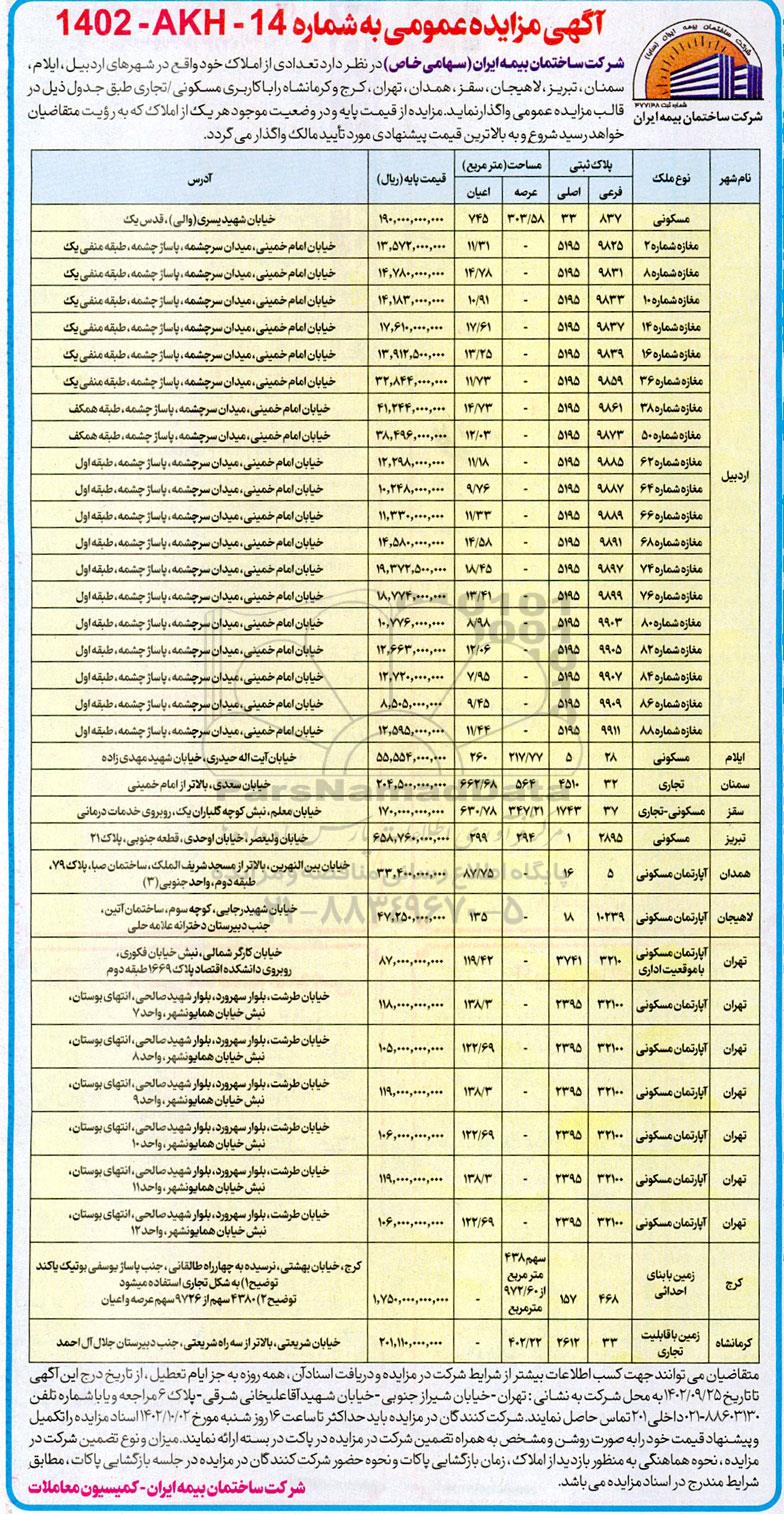 آگهی مزایده عمومی به شماره 14 - AKH - 1402
شرکت ساختمان بیمه ایران (سهامی خاص) در نظر دارد تعدادی از املاک خود واقع در شهرهای اردبیل، ایلام،
سمنان، تبریز، لاهیجان، سقز، همدان، تهران، کرج و کرمانشاه را با کاربری مسکونی/تجاری طبق جدول ذیل در
قالب مزایده عمومی واگذار نماید. مزایده از قیمت پایه و در وضعیت موجود هر یک از املاک که به رؤیت متقاضیان
خواهد رسید شروع و به بالاترین قیمت پیشنهادی مورد تأیید مالک واگذار می گردد.
شرکت ساختمان بیمه ایران (سابیا)
شماره ثبت ۴۷۷۱۴۸
شرکت ساختمان بیمه ایران
نام شهر نوع ملک پلاک ثبتی مساحت (متر مربع) قیمت پایه (ریال) آدرس
فرعی اصلی عرصه اعیان
اردبیل
مسکونی ۸۳۷ ۳۳ ۳۰۳/۵۸ ۷۴۵ ۱۹۰,۰۰۰,۰۰۰,۰۰۰ خیابان شهید یسری (والی)، قدس یک
مغازه شماره ۲ ۹۸۲۵ ۵۱۹۵ - ۱۱/۳۱ ۱۳,۵۷۲,۰۰۰,۰۰۰ خیابان امام خمینی، میدان سرچشمه، پاساژ چشمه، طبقه منفی یک
مغازه شماره ۸ ۹۸۳۱ ۵۱۹۵ - ۱۴/۷۸ ۱۴,۷۸۰,۰۰۰,۰۰۰ خیابان امام خمینی، میدان سرچشمه، پاساژ چشمه، طبقه منفی یک
مغازه شماره ۱۰ ۹۸۳۳ ۵۱۹۵ - ۱۰/۹۱ ۱۴,۱۸۳,۰۰۰,۰۰۰ خیابان امام خمینی، میدان سرچشمه، پاساژ چشمه، طبقه منفی یک
مغازه شماره ۱۴ ۹۸۳۷ ۵۱۹۵ - ۱۷/۶۱ ۱۷,۶۱۰,۰۰۰,۰۰۰ خیابان امام خمینی، میدان سرچشمه، پاساژ چشمه، طبقه منفی یک
مغازه شماره ۱۶ ۹۸۳۹ ۵۱۹۵ - ۱۳/۲۵ ۱۳,۹۱۲,۵۰۰,۰۰۰ خیابان امام خمینی، میدان سرچشمه، پاساژ چشمه، طبقه منفی یک
مغازه شماره ۳۶ ۹۸۵۹ ۵۱۹۵ - ۱۱/۷۳ ۳۲,۸۴۴,۰۰۰,۰۰۰ خیابان امام خمینی، میدان سرچشمه، پاساژ چشمه، طبقه منفی یک
مغازه شماره ۳۸ ۹۸۶۱ ۵۱۹۵ - ۱۴/۷۳ ۴۱,۲۴۴,۰۰۰,۰۰۰ خیابان امام خمینی، میدان سرچشمه، پاساژ چشمه، طبقه همکف
مغازه شماره ۵۰ ۹۸۷۳ ۵۱۹۵ - ۱۲/۰۳ ۳۸,۴۹۶,۰۰۰,۰۰۰ خیابان امام خمینی، میدان سرچشمه، پاساژ چشمه، طبقه همکف
مغازه شماره ۶۲ ۹۸۸۵ ۵۱۹۵ - ۱۱/۱۸ ۱۲,۲۹۸,۰۰۰,۰۰۰ خیابان امام خمینی، میدان سرچشمه، پاساژ چشمه، طبقه اول
مغازه شماره ۶۴ ۹۸۸۷ ۵۱۹۵ - ۹/۷۶ ۱۰,۲۴۸,۰۰۰,۰۰۰ خیابان امام خمینی، میدان سرچشمه، پاساژ چشمه، طبقه اول
مغازه شماره ۶۶ ۹۸۸۹ ۵۱۹۵ - ۱۱/۳۳ ۱۱,۳۳۰,۰۰۰,۰۰۰ خیابان امام خمینی، میدان سرچشمه، پاساژ چشمه، طبقه اول
مغازه شماره ۶۸ ۹۸۹۱ ۵۱۹۵ - ۱۴/۵۸ ۱۴,۵۸۰,۰۰۰,۰۰۰ خیابان امام خمینی، میدان سرچشمه، پاساژ چشمه، طبقه اول
مغازه شماره ۷۴ ۹۸۹۷ ۵۱۹۵ - ۱۸/۴۵ ۱۹,۳۷۲,۵۰۰,۰۰۰ خیابان امام خمینی، میدان سرچشمه، پاساژ چشمه، طبقه اول
مغازه شماره ۷۶ ۹۸۹۹ ۵۱۹۵ - ۱۳/۴۱ ۱۸,۷۷۴,۰۰۰,۰۰۰ خیابان امام خمینی، میدان سرچشمه، پاساژ چشمه، طبقه اول
مغازه شماره ۸۰ ۹۹۰۳ ۵۱۹۵ - ۸/۹۸ ۱۰,۷۷۶,۰۰۰,۰۰۰ خیابان امام خمینی، میدان سرچشمه، پاساژ چشمه، طبقه اول
مغازه شماره ۸۲ ۹۹۰۵ ۵۱۹۵ - ۱۲/۰۶ ۱۲,۶۶۳,۰۰۰,۰۰۰ خیابان امام خمینی، میدان سرچشمه، پاساژ چشمه، طبقه اول
مغازه شماره ۸۴ ۹۹۰۷ ۵۱۹۵ - ۷/۹۵ ۱۲,۷۲۰,۰۰۰,۰۰۰ خیابان امام خمینی، میدان سرچشمه، پاساژ چشمه، طبقه اول
مغازه شماره ۸۶ ۹۹۰۹ ۵۱۹۵ - ۹/۴۵ ۸,۵۰۵,۰۰۰,۰۰۰ خیابان امام خمینی، میدان سرچشمه، پاساژ چشمه، طبقه اول
مغازه شماره ۸۸ ۹۹۱۱ ۵۱۹۵ - ۱۱/۴۴ ۱۲,۵۹۵,۰۰۰,۰۰۰ خیابان امام خمینی، میدان سرچشمه، پاساژ چشمه، طبقه اول
ایلام مسکونی ۲۸ ۵ ۲۱۷/۷۷ ۲۶۰ ۵۵,۵۵۴,۰۰۰,۰۰۰ خیابان آیت اله حیدری، خیابان شهید مهدی زاده
سمنان تجاری ۳۲ ۴۵۱۰ ۵۶۴ ۶۶۲/۶۸ ۲۰۴,۵۰۰,۰۰۰,۰۰۰ خیابان سعدی، بالاتر از امام خمینی
سقز مسکونی-تجاری ۳۷ ۱۷۴۳ ۳۴۷/۲۱ ۶۳۰/۷۸ ۱۷۰,۰۰۰,۰۰۰,۰۰۰ خیابان معلم، نبش کوچه گلباران یک، روبروی خدمات درمانی
تبریز مسکونی ۲۸۹۵ ۱ ۲۹۴ ۲۹۹ ۶۵۸,۷۶۰,۰۰۰,۰۰۰ خیابان ولیعصر، خیابان اوحدی، قطعه جنوبی، پلاک ۲۱
همدان آپارتمان مسکونی ۵ ۱۶ - ۸۷/۷۵ ۳۳,۴۰۰,۰۰۰,۰۰۰ خیابان بین النهرین، بالاتر از مسجد شریف الملک، ساختمان صبا، پلاک ۷۹،
طبقه دوم، واحد جنوبی (۳)
لاهیجان آپارتمان مسکونی ۱۰۲۳۹ ۱۸ - ۱۳۵ ۴۷,۲۵۰,۰۰۰,۰۰۰ خیابان شهید رجایی، کوچه سوم، ساختمان آتین،
جنب دبیرستان دخترانه علامه حلی
تهران آپارتمان مسکونی با موقعیت اداری ۳۲۱۰ ۳۷۴۱ - ۱۱۹/۴۲ ۸۷,۰۰۰,۰۰۰,۰۰۰ خیابان کارگر شمالی، نبش خیابان فکوری،
روبروی دانشکده اقتصاد پلاک ۱۶۶۹ طبقه دوم
تهران آپارتمان مسکونی ۳۲۱۰۰ ۲۳۹۵ - ۱۳۸/۳ ۱۱۸,۰۰۰,۰۰۰,۰۰۰ خیابان طرشت، بلوار سهرورد، بلوار شهید صالحی، انتهای بوستان،
نبش خیابان همایونشهر، واحد ۷
تهران آپارتمان مسکونی ۳۲۱۰۰ ۲۳۹۵ - ۱۲۲/۶۹ ۱۰۵,۰۰۰,۰۰۰,۰۰۰ خیابان طرشت، بلوار سهرورد، بلوار شهید صالحی، انتهای بوستان،
نبش خیابان همایونشهر، واحد ۸
تهران آپارتمان مسکونی ۳۲۱۰۰ ۲۳۹۵ - ۱۳۸/۳ ۱۱۹,۰۰۰,۰۰۰,۰۰۰ خیابان طرشت، بلوار سهرورد، بلوار شهید صالحی، انتهای بوستان،
نبش خیابان همایونشهر، واحد ۹
تهران آپارتمان مسکونی ۳۲۱۰۰ ۲۳۹۵ - ۱۲۲/۶۹ ۱۰۶,۰۰۰,۰۰۰,۰۰۰ خیابان طرشت، بلوار سهرورد، بلوار شهید صالحی، انتهای بوستان،
نبش خیابان همایونشهر، واحد ۱۰
تهران آپارتمان مسکونی ۳۲۱۰۰ ۲۳۹۵ - ۱۳۸/۳ ۱۱۹,۰۰۰,۰۰۰,۰۰۰ خیابان طرشت، بلوار سهرورد، بلوار شهید صالحی، انتهای بوستان،
نبش خیابان همایونشهر، واحد ۱۱
تهران آپارتمان مسکونی ۳۲۱۰۰ ۲۳۹۵ - ۱۲۲/۶۹ ۱۰۶,۰۰۰,۰۰۰,۰۰۰ خیابان طرشت، بلوار سهرورد، بلوار شهید صالحی، انتهای بوستان،
نبش خیابان همایونشهر، واحد ۱۲
کرج زمین با بنای احداثی ۴۶۸ ۱۵۷ سهم ۴۳۸ متر مربع از ۹۷۲/۶۰ مترمربع - ۱,۷۵۰,۰۰۰,۰۰۰,۰۰۰ کرج، خیابان بهشتی، نرسیده به چهارراه طالقانی، جنب پاساژ یوسفی بوتیک پاکند
توضیح ۱) به شکل تجاری استفاده میشود
توضیح ۲) ۴۳۸۰ سهم از ۹۷۲۶ سهم عرصه و اعیان
کرمانشاه زمین با قابلیت تجاری ۳۳ ۲۶۱۲ ۴۰۲/۲۲ - ۲۰۱,۱۱۰,۰۰۰,۰۰۰ خیابان شریعتی، بالاتر از سه راه شریعتی، جنب دبیرستان جلال آل احمد
متقاضیان می توانند جهت کسب اطلاعات بیشتر از شرایط شرکت در مزایده و دریافت اسناد آن، همه روزه به جز ایام تعطیل، از تاریخ درج این آگهی
تا تاریخ ۱۴۰۲/۰۹/۲۵ به محل شرکت به نشانی: تهران-خیابان شیراز جنوبی-خیابان شهید آقاعلیخانی شرقی-پلاک ۶ مراجعه و یا با شماره تلفن
۰۲۱-۸۸۶۰۳۱۳۰ داخلی ۲۰۱ تماس حاصل نمایند. شرکت کنندگان در مزایده باید حداکثر تا ساعت ۱۶ روز شنبه مورخ ۱۴۰۲/۱۰/۰۲ اسناد مزایده را تکمیل
و پیشنهاد قیمت خود را به صورت روشن و مشخص به همراه تضمین شرکت در مزایده در پاکت در بسته ارائه نمایند. میزان و نوع تضمین شرکت در
مزایده، نحوه هماهنگی به منظور بازدید از املاک، زمان بازگشایی پاکات و نحوه حضور شرکت کنندگان در مزایده در جلسه بازگشایی پاکات، مطابق
شرایط مندرج در اسناد مزایده می باشد.
شرکت ساختمان بیمه ایران - کمیسیون معاملات
ParsNamadData
پایگاه اطلاع رسانی مناقصه و مزایده
۰۲۱-۸۸۳۴۹۶۷۰-۵